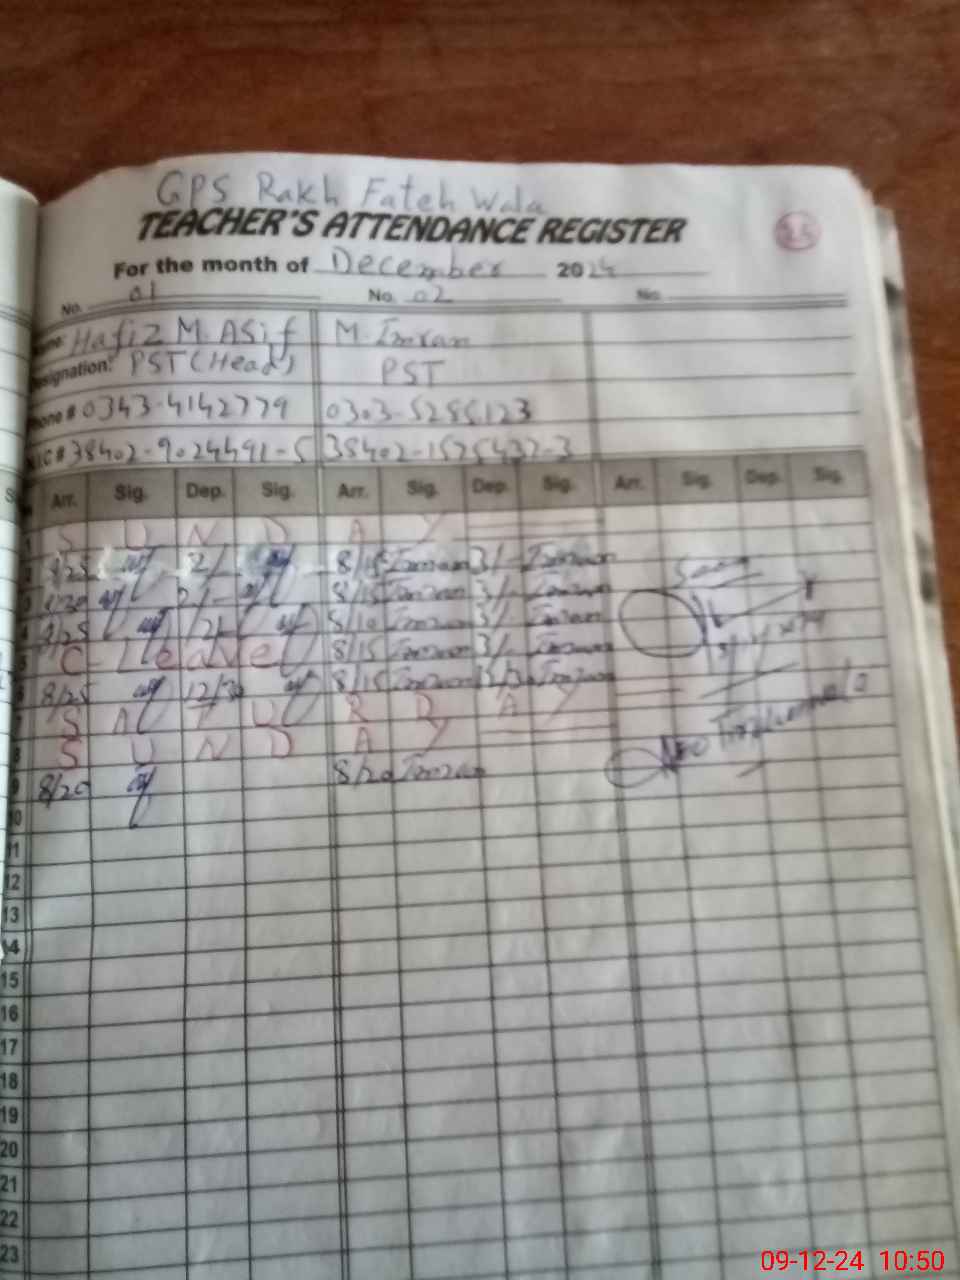 GPS Rakh Fateh Wala
TEACHER'S ATTENDANCE REGISTER
For the month of December 2024
No. 01 No. 02 No.
Hafiz M. Asif M. Imran
Designation: PST (Head) PST
Phone # 0343-4142779 0303-5285123
38402-9024491-5 38402-1575437-3
Arr. Sig. Dep. Sig. Arr. Sig. Dep. Sig. Arr. Sig. Dep. Sig.
S U N D A Y
8/25 2/- 8/15 Imran 3/- Imran
8/20 2/- 8/15 Imran 3/- Imran
8/25 2/- 8/10 Imran 3/- Imran
C-Leave 8/15 Imran 3/- Imran
8/25 12/30 8/15 Imran Imran
S A T U R D A Y
8 S U N D A Y
9 8/20 8/20 Imran
10
11
12
13
14
15
16
17
18
19
20
21
22
23
Seen
09-12-24 10:50